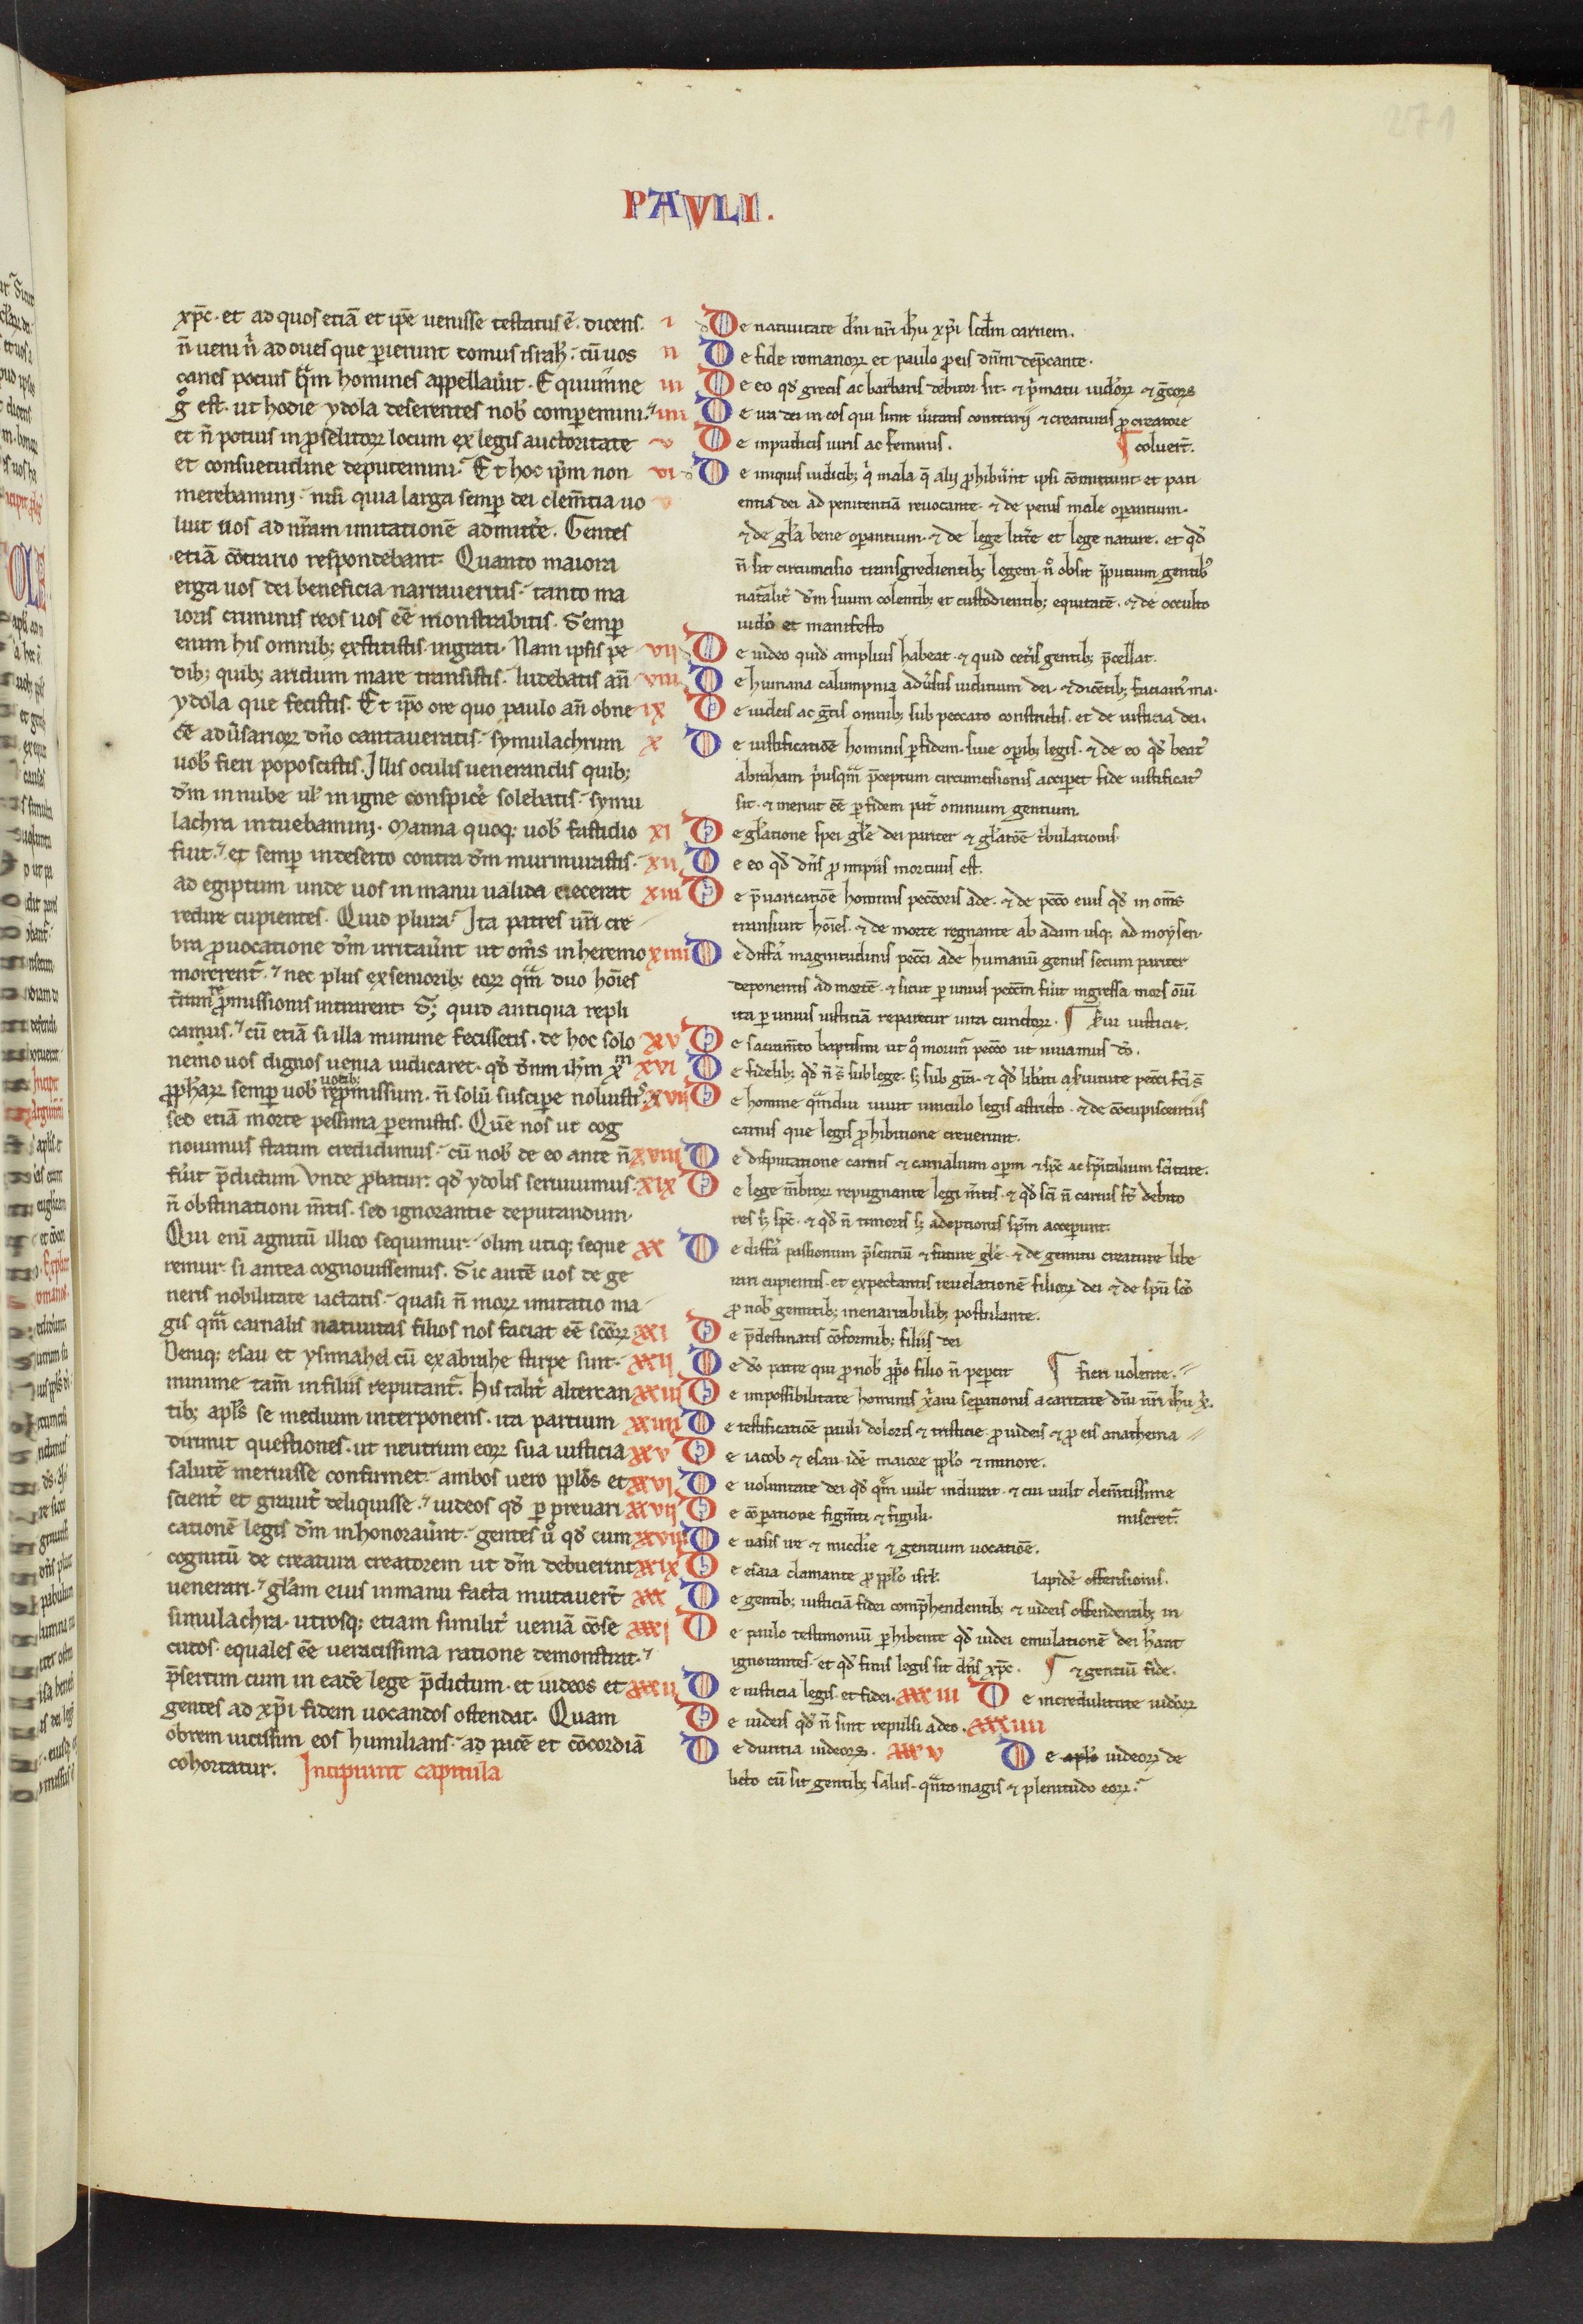 271
PAVLI.
xp̄c. et ad quos etiā et ip̄e uenisse testatus ē. dicens.
n̄ ueni n̄ ad oues que perierunt domus isrł. cū uos
canes potius qͣm homines appellauīt. Equumne
g̊ est. ut hodie ydola deserentes nob̄ comperemini.
et n̄ potius in proselitoꝝ locum ex legis auctoritate
et consuetudine deputemini. Et hoc ip̄m non
merebamini. nisi quia larga semp̄ dei clem̄tia uo
luit uos ad nr̄am imitationē admitte᷑. Gentes
etiā c̄otrario respondebant. Quanto maiora
erga uos dei beneficia narraueritis. tanto ma
ioris criminis reos uos ēē monstrabitis. Semp̄
enim his omnib; exstitistis ingrati. Nam ipsis pe
dib; quib; aridum mare transistis. ludebatis an̄
ydola que fecistis. Et ip̄o ore quo paulo an̄ obne
cē adūsarioꝝ dn̄o cantaueratis. symulachrum
uob̄ fieri poposcistis. Illis oculis uenerandis quib;
dm̄ in nube uł in igne conspice᷑ solebatis. symu
lachra intuebamini. Manna quoq; uob̄ fastidio
fuit. et semp̄ in deserto contra dm̄ murmurastis.
ad egiptum unde uos in manu ualida eiecerat
redire cupientes. Quid plura. Ita patres ur̄i cre
bra prouocatione dm̄ irritauīnt ut om̄s in heremo
morerent᷑. nec plus ex senioribꝫ eoꝝ qͣm duo hōies
t̄ram re promissionis intrarent. Sꝫ quid antiqua repli
camus. cū etiā si illa minime fecissetis. de hoc solo
nemo uos dignos uenia iudicaret. qđ dn̄m ih̄m xᵐ
prophaꝝ semp̄ uob̄ uocib; repmissum. n̄ solū suscipe noluisti᷑.
sed etiā morte pessima peremistis. Quē nos ut cog
nouimus statim credidimus. cū nob̄ de eo ante n̄
fuīt p̄dictum Vnde probatur. qđ ydolis seruiuimus.
n̄ obstinationi m̄tis. sed ignorantie deputandum.
Qui eni agnitū illico sequimur. olim utiq; seque
remur. si antea cognouissemus. Sic autē uos de ge
neris nobilitate iactatis. quasi n̄ moꝝ imitatio ma
gis qͣm carnalis natiuitas filios nos faciat ēē sc̄oꝝ
Deniq; esau et ysmahel cū ex abrahe stirpe sint.
minime tam̄ in filiis reputant᷑. His talit̄ altercan
tib; apl̄s se medium interponens. ita partium
dirimit questiones. ut neutrum eoꝝ sua iusticia
salutē meruisse confirmet. ambos uero pp̄los et
scient̄ et grauit̄ deliquisse. iudeos qđ per preuari
cationē legis dm̄ inhonorauīnt. gentes ů qđ cum
cognitū de creatura creatorem ut dm̄ debuerint
uenerari. gl̄am eius in manu facta mutauer̄t
simulachra. utrosq; etiam similit̄ ueniā c̄ose
cutos. equales ēē ueracissima ratione demonstrat.
p̄sertim cum in eadē lege p̄dictum. et iudeos et
gentes ad xp̄i fidem uocandos ostendat. Quam
obrem uicissim eos humilians. ad pacē et c̄ocordiā
cohortatur. Incipiunt capitula
i De natiuitate dn̄i nr̄i ih̄u xp̄i scđm carnem.
ii De fide romanoꝝ et paulo pro eis dn̄m dep̄cante.
iii De eo qđ grecis ac barbaris debitor sit. ⁊ p̄matu iudeoꝝ ⁊ g̅coꝝ
iiii De ira dei in eos qui sunt ūitatis contrarii ⁊ creaturas pro creatore
v De inpudicis uiris ac feminis. ¶ coluer̄t.
vi De iniquis iudicib; q̇ mala q̄ aliis prohibuīnt ipsi c̄omittunt et pati
entia dei ad penitentiā reuocante. ⁊ de penis male operantium.
⁊ de gl̄a bene operantium. ⁊ de lege litt̄e et lege nature. et qđ
n̄ sit circumcisio transgredientib; legem. n̊ obsit p̄putium gentib᷑
nat̄alit̄ dm̄ suum colentib; et custodientib; equitatē. ⁊ de occulto
iudeo et manifesto
vii De iudeo quid amplius habeat. ⁊ quid cet̄is gentib; p̄cellat.
viii De humana calumpnia adūsus iudicium dei. ⁊ dicētib; faciam᷑ ma.
ix De iudeis ac g̅cis omnib; sub peccato constrictis. et de iusticia dei.
x De iustificatiōe hominis per fidem. siue operib; legis. ⁊ de eo qđ beat᷑
abraham p̄usqͣm p̄ceptum circumcisionis acciperet fide iustificat᷑
sit. ⁊ meruit ēē per fidem pat̄ omnium gentium.
xi De gl̄atione spei gl̄e dei pariter ⁊ gl̄atōe t̄bulationis.
xii De eo qđ dn̄s pro impiis mortuus est.
xiii De p̄uaricatiōe hominis peccōris ade. ⁊ de pccō eius qđ in om̄s
transiuit hōies. ⁊ de morte regnante ab adam usq; ad moysen.
xiiii De diff̄a magnitudinis pecc̄i ade humanū genus secum pariter
deponentis ad mortē. ⁊ sicut per unius pecc̄m fuīt ingressa mors ōiū
ita per unius iusticiā repararetur uita cunctoꝝ. ¶ ſ̄ui iusticie.
xv De sacram̄to baptismi ut q̊ morim᷑ pecc̄o ut uiuamus dō.
xvi De fidelib; qđ n̄ s̄ sub lege. sꝫ sub gr̄a. ⁊ qđ lib̄ati a s̄uitute pecc̄i fc̄i s̄
xvii De homine qͣmdiu uiuit uinculo legis astricto. ⁊ de c̄ocupiscentiis
carnis que legis prohibitione creuerunt.
xviii De disputatione carnis ⁊ carnalium operm ⁊ sp̄c ac sp̄italium sc̄itate.
xix De lege m̄broꝝ repugnante legi m̄tis. ⁊ qđ sc̄i n̄ carnis st̄ debito
res sꝫ sp̄c. ⁊ qđ n̄ timoris sꝫ adoptionis sp̄m acceperunt.
xx De diff̄a passionum p̄sentiū ⁊ future gl̄e. ⁊ de gemitu creature libe
rari cupientis. et expectantis reuelationē filioꝝ dei ⁊ de sp̄u sc̄o
pro nob̄ gemitib; inenarrabilib; postulante.
xxi De p̄destinatis c̄oformib; filiis dei
xxii De dō patre qui pro nob̄ prop̄o filio n̄ pepercit ¶ fieri uolente.
xxiii De impossibilitate hominis x̄ani seperationis a caritate dn̄i nr̄i ih̄u x̄.
xxiiii De testificatiōe pauli doloris ⁊ tristicie. pro iudeis ⁊ pro eis anathema
xxv De iacob ⁊ esau. idē maiore pp̄lo ⁊ minore.
xxvi De uoluntate dei qđ qͤm uult indurat. ⁊ cui uult clem̄tissime
xxvii De c̄operatione figm̄ti ⁊ figuli. miseret᷑.
xxviii De uasis ire ⁊ mic̄die ⁊ gentium uocatiōe.
xxix De esaia clamante pro pp̄lo isrł. lapidē offensionis.
xxx De gentib; iusticiā fidei comp̄hendentib; ⁊ iudeis offendentib; in
xxxi De paulo testimoniū perhibente qđ iudei emulationē dei hn̄t
ignorantes. et qđ finis legis sit dn̄s xp̄c. ¶ ⁊ gentiū fide.
xxxii De iusticia legis. et fidei. xxxiii De incredulitate iudeoꝝ
De iudeis qđ n̄ sint repulsi a deo. xxxiiii
De diuitia iudeoꝝ. xxxv De aplo iudeoꝝ de
licto cū sit gentib; salus. qͣnto magis ⁊ plenitudo eoꝝ.